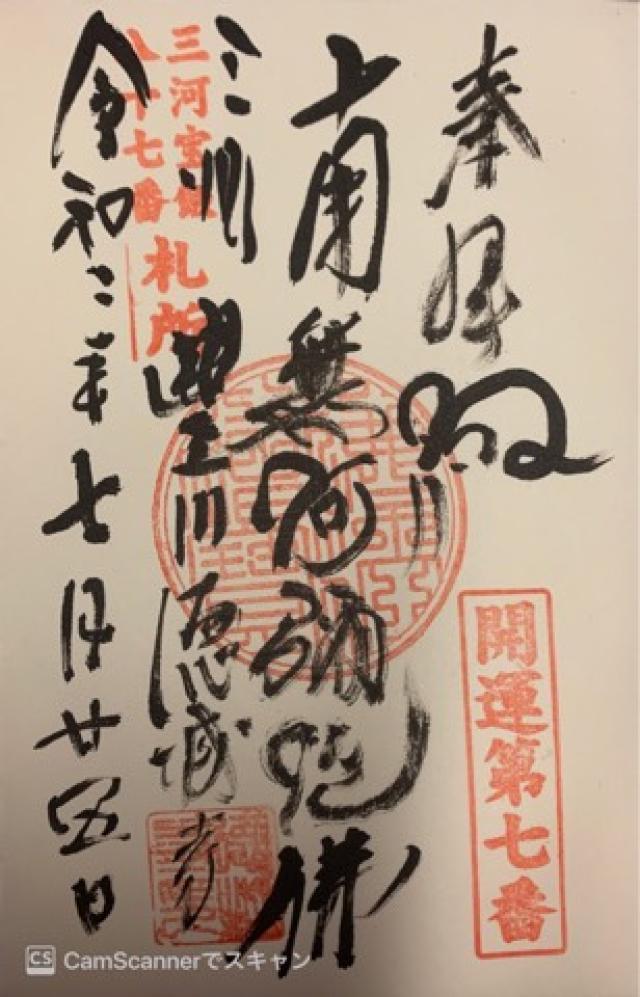 奉拜
開運第七番
南無阿彌陀佛
三河宝飯
八十七番
札所
三州 豐川 徳城寺
令和二年七月廿五日
CS CamScannerでスキャン